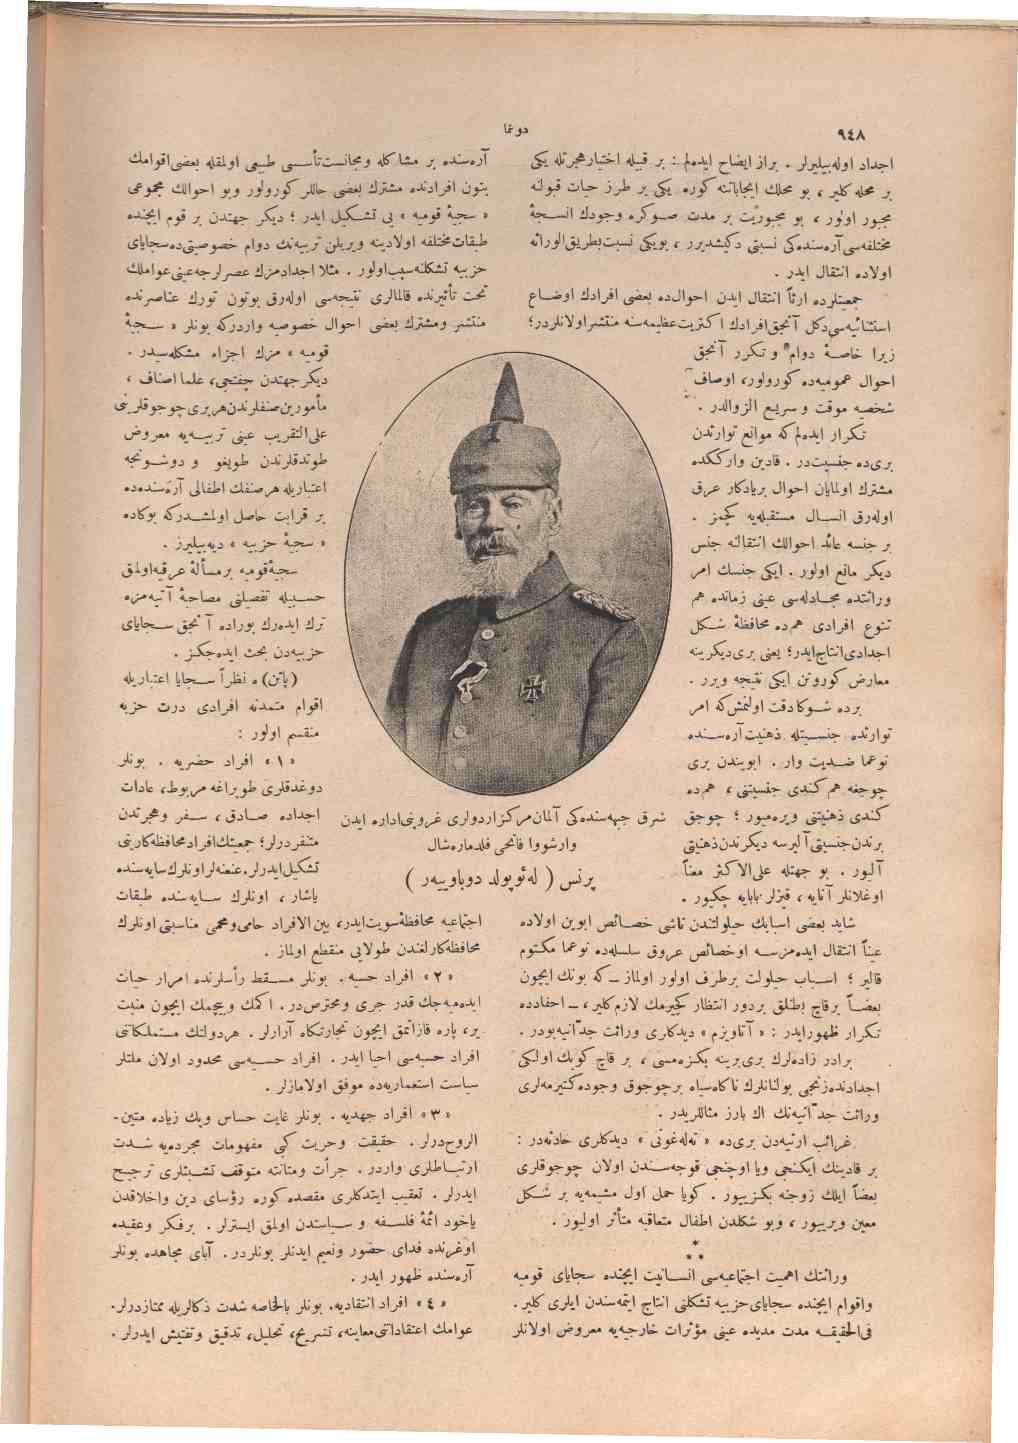 دوغا
٩٤٨
اجداد اوله‌بیلیرلر . براز ایضاح ایده‌لم : بر قبیله اختیارهجرتله یکی
بر محله کلیر ، بو محلك ایجاباتنه کوره یکی بر طرز حیات قبولنه
مجبور اولور ، بو مجبوریت بر مدت صوکره وجودك انسجهٔ
مختلفه‌سی آره‌سنده‌کی نسبتی دکیشدیرر ، بویکی نسبت بطریق‌الوراثه
اولاده انتقال ایدر .
جمعیتلرده ارثاً انتقال ایدن احوال‌ده بعضی افرادك اوضاع
استثنائیه‌سی‌دکل آنجق‌افرادك اکثریت‌عظیمه‌سنه منتشراولانلردر؛
زیرا خاصهٔ دوام و تکرر آنجق
احوال عمومیه‌ده کورولور، اوصاف
شخصیه موقت و سریع الزوالدر .
تکرار ایده‌لم که موانع توارثدن
بری‌ده جنسیت‌در . قادین وارککده
مشترك اولمایان احوال بریادکار عرق
اوله‌رق انسال مستقبله‌یه کچمز .
بر جنسه عائد احوالك انتقالنه جنس
دیکر مانع اولور . ایکی جنسك امر
وراثتده مجادله‌سی عینی زمانده هم
تنوع افرادی هم‌ده محافظهٔ شکل
اجدادی‌انتاج‌ایدر؛ یعنی بری‌دیکرینه
معارض کورونن ایکی نتیجه ویرر .
برده شوکادقت اولنمش‌که امر
توارثده جنسیتله ذهنیت آره‌سنده
نوعما ضدیت وار . ابویندن بری
چوجغه هم کندی جنسیتنی ، هم‌ده
کندی ذهنیتنی ویره‌میور ؛ چوجق
برندن‌جنسیتی‌آلیرسه دیکرندن‌ذهنیتی
آلیور . بو جهتله علی‌الاکثر معناً
اوغلانلر آنایه ، قیزلر بابایه چکیور .
شاید بعضی اسبابك حیلولتندن ناشی خصائص ابوین اولاده
عیناً انتقال ایده‌مزسه اوخصائص عروق سلسله‌ده نوعما مکتوم
قالیر ؛ اسباب حیلولت برطرف اولور اولماز ــ که بونك ایچون
بعضاً برقاچ بطنلق بردور انتظار کچیرمك لازم‌کلیر ، ــ احفادده
تکرار ظهورایدر : « آتاویزم » دیدکلری وراثت جدّانیه‌بودر .
برادر زاده‌لرك بری‌برینه بکزه‌مسی ، بر قاچ کوبك اولکی
اجدادنده‌زنجی بولنانلرك ناکاه‌سیاه برچوجوق وجوده‌کتیرمه‌لری
وراثت جدّانیه‌نك اك بارز مثاللریدر .
غرائب ارثیه‌دن بری‌ده « ته‌له‌غونی » دیدکلری حادثه‌در :
بر قادینك ایکنجی ویا اوچنجی قوجه‌سندن اولان چوجوقلری
بعضاً ایلك زوجنه بکزیور . کویا حمل اول مشیمه‌یه بر شکل
معین ویریور ، وبو شکلدن اطفال متعاقبه متأثر اولیور .
*
* *
وراثتك اهمیت اجتماعیه‌سی انسانیت ایچنده سجایای قومیه
واقوام ایچنده سجایای حزبیه تشکلنی انتاج ایتمه‌سندن ایلری کلیر .
فی‌الحقیقه مدت مدیده عینی مؤثرات خارجیه‌یه معروض اولانلر
آره‌سنده بر مشاکله ومجانست‌تأسسی طبیعی اولمقله بعضی‌اقوامك
بتون افرادنده مشترك بعضی حاللر کورولور وبو احوالك مجموعی
« سجیهٔ قومیه » یی تشکیل ایدر ؛ دیکر جهتدن بر قوم ایچنده
طبقات‌مختلفه اولادینه ویریلن تربیه‌نك دوام خصوصیتی‌ده‌سجایای
حزبیه تشکلنه‌سبب‌اولور . مثلا اجدادمزك عصرلرجه‌عینی‌عواملك
تحت تأثیرنده قالمالری نتیجه‌سی اوله‌رق بوتون تورك عناصرنده
منتشر ومشترك بعضی احوال خصوصیه واردرکه بونلر « سجیهٔ
قومیه » مزك اجزاء مشکله‌سیدر .
دیکر جهتدن چفتجی، علما اصناف ،
مأمورین‌صنفلرندن‌هربری‌چوجوقلرینی
علی‌التقریب عینی تربیه‌یه معروض
طوتدقلرندن طویغو و دوشونجه
اعتباریله هرصنفك اطفالی آره‌سنده‌ده
بر قرابت حاصل اولمشدرکه بوکاده
« سجیهٔ حزبیه » دیه‌بیلیرز .
سجیهٔ‌قومیه برمسألهٔ عرقیه‌اولمق
حسبیله تفصیلنی مصاحبهٔ آتیه‌مزه
ترك ایده‌رك بوراده آنجق سجایای
حزبیه‌دن بحث ایده‌جکز .
(پاتن) ه نظراً سجایا اعتباریله
اقوام متمدنه افرادی درت حزبه
منقسم اولور :
« ١ » افراد حضریه . بونلر
دوغدقلری طوپراغه مربوط، عادات
اجداده صادق، سفر وهجرتدن
متنفردرلر؛ جمعیتك‌افرادمحافظه‌کارینی
تشکیل‌ایدرلر.عنعنه‌لراونلرك‌سایه‌سنده
یاشار ، اونلرك سایه‌سنده طبقات
اجتماعیه محافظهٔ‌سویت‌ایدر، بین‌الافراد حامی‌ومحمی مناسبتی اونلرك
محافظه‌کارلغندن طولایی منقطع اولماز .
« ٢ » افراد حسیه . بونلر مسقط رأسلرنده امرار حیات
ایده‌میه‌جك قدر جری ومحترص‌در . اکمك وییچمك ایچون منبت
یر، پاره قازانمق ایچون تجارتکاه آرارلر . هردولتك مستملکاتنی
افراد حسیه‌سی احیا ایدر . افراد حسیه‌سی محدود اولان ملتلر
سیاست استعماریه‌ده موفق اولامازلر .
« ٣ » افراد جهدیه . بونلر غایت حساس وپك زیاده متین-
الروح‌درلر . حقیقت وحریت کبی مفهومات مجرده‌یه شدت
ارتباطلری واردر . جرأت ومتانته متوقف تشبثلری ترجیح
ایدرلر . تعقیب ایتدکلری مقصده‌کوره رؤسای دین واخلاقدن
یاخود ائمهٔ فلسفه و سیاستدن اولمق ایسترلر . برفکر وعقیده
اوغرنده فدای حضور ونعیم ایدنلر بونلردر . آبای مجاهده بونلر
آره‌سنده ظهور ایدر .
« ٤ » افراد انتقادیه . بونلر بالخاصه شدت ذکالریله ممتازدرلر.
عوامك اعتقاداتنی‌معاینه، تشریح، تحلیل، تدقیق وتفتیش ایدرلر .
شرق جبهه‌سنده‌کی آلمان‌مرکزاردولری غروپنی‌اداره ایدن
وارشووا فاتحی فلدماره‌شال
پرنس ( له‌ئوپولد دوباوییه‌ر )